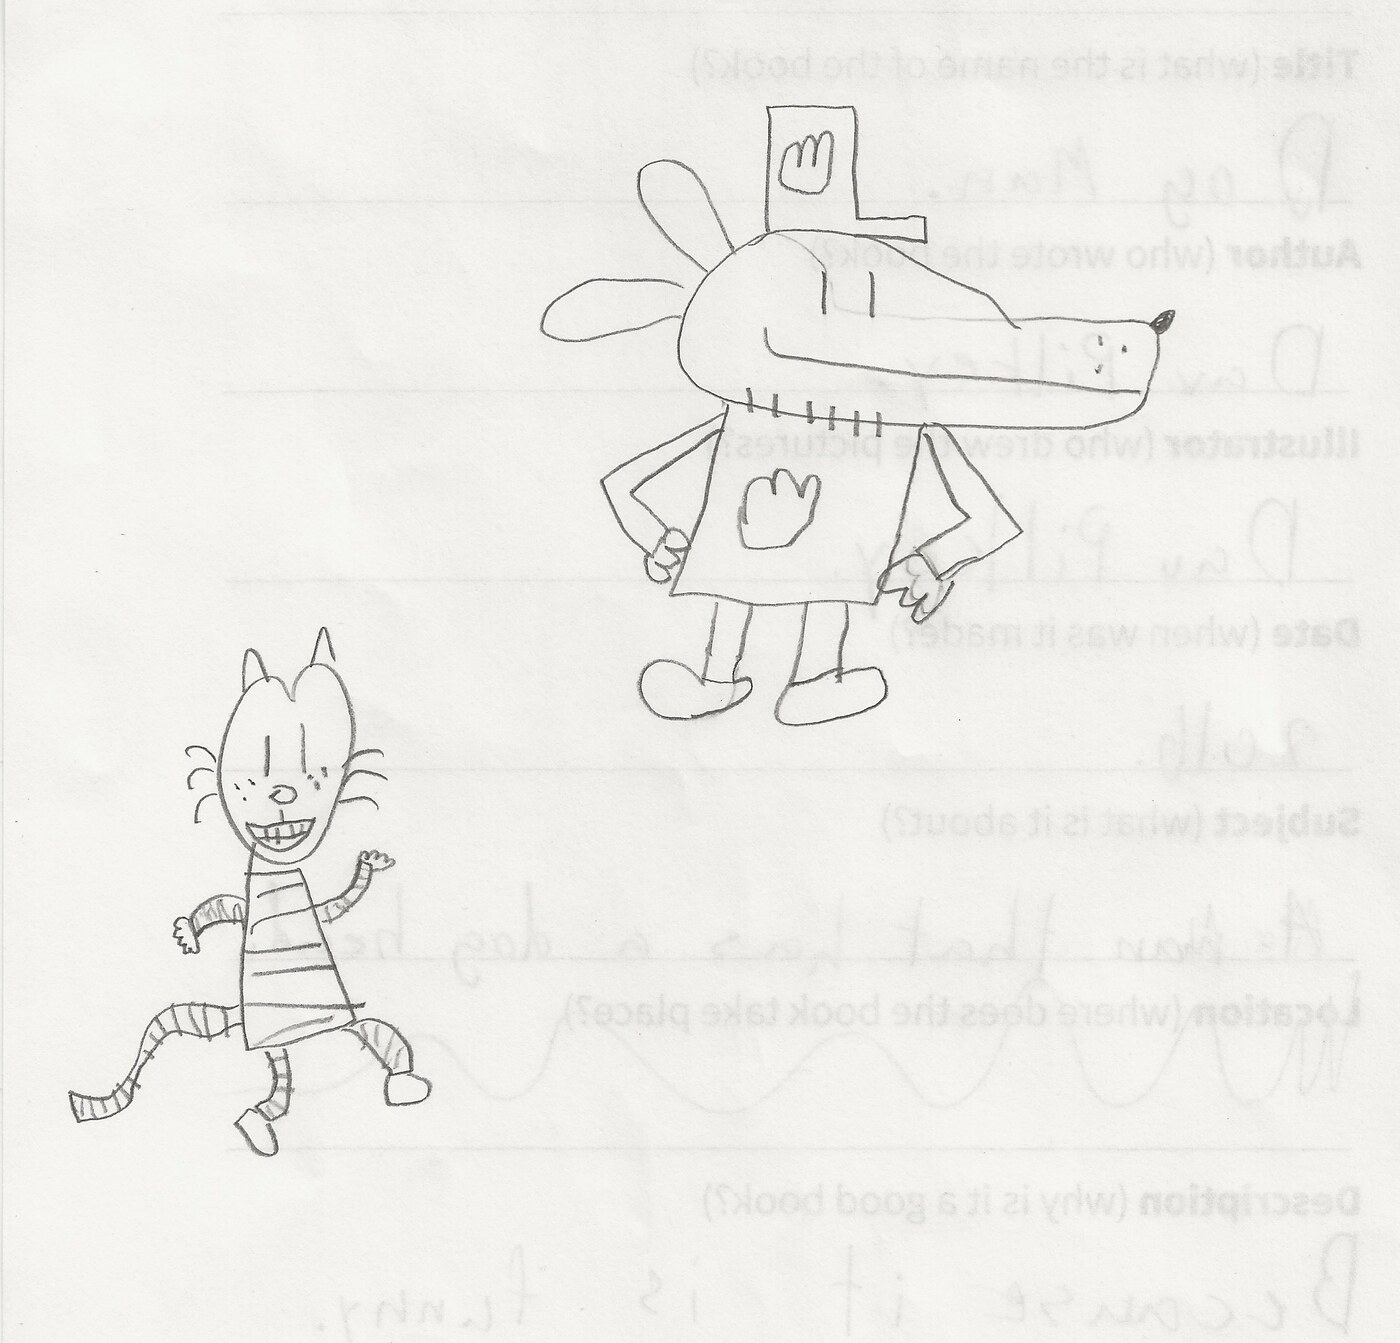 Title (what is the name of the book?)
Dog Man.
Author (who wrote the book?)
Dav Pilkey.
Illustrator (who drew the pictures?)
Dav Pilkey.
Date (when was it made?)
Subject (what is it about?)
A man that has a dog head.
Location (where does the book take place?)
Description (why is it a good book?)
Because it is funny.